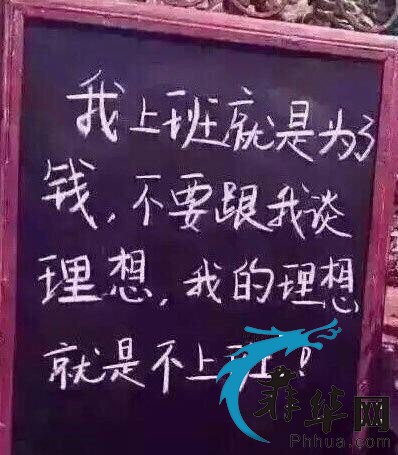 我上班就是为了
钱,不要跟我谈
理想,我的理想
就是不上班!
菲华网
Phhua.com